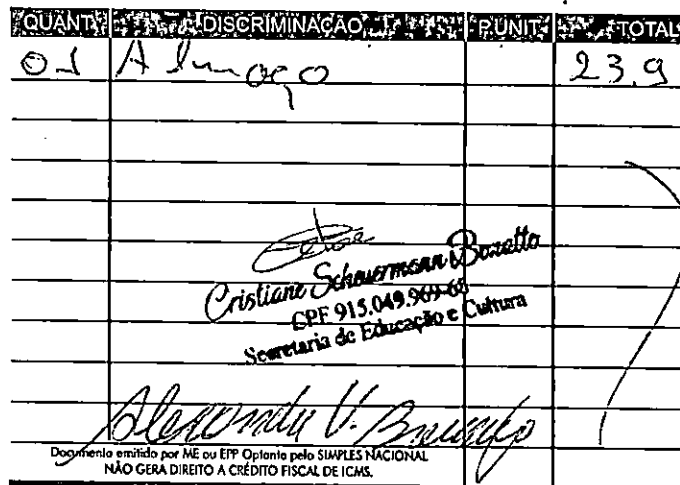 QUANT. DISCRIMINAÇÃO P.UNIT. TOTAL
01 Almoço 23,9
Cristiane Scheuermann Bonetto
CPF 915.049.969-68
Secretaria de Educação e Cultura
V.
Documento emitido por ME ou EPP Optante pelo SIMPLES NACIONAL
NÃO GERA DIREITO A CRÉDITO FISCAL DE ICMS.